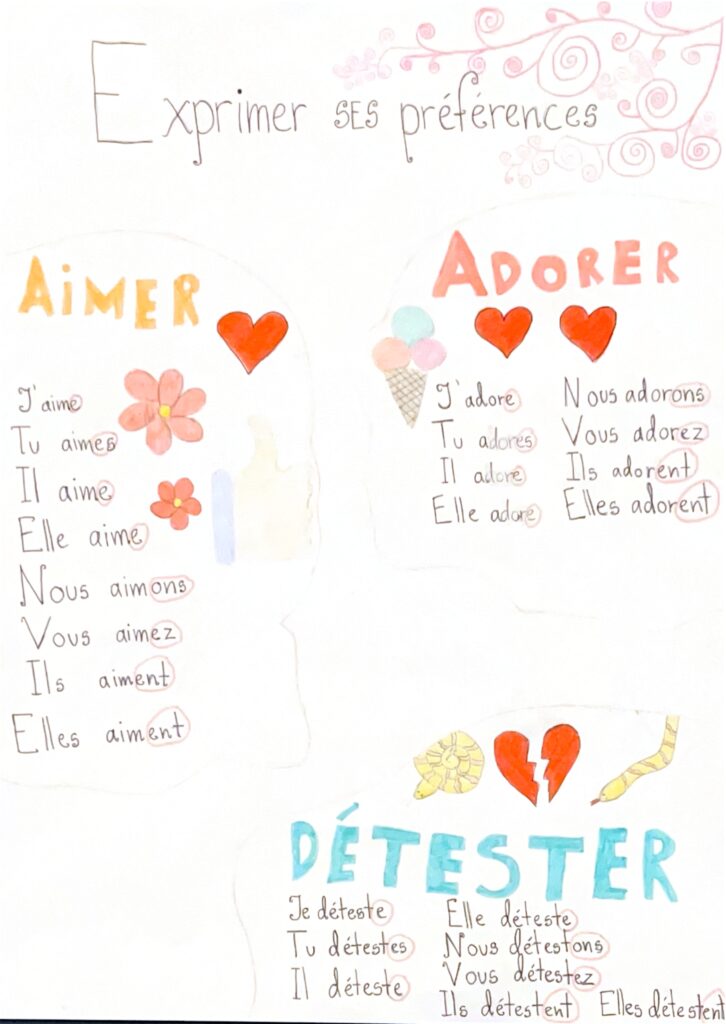 Exprimer SES préférences
AiMER
J'aime
Tu aimes
Il aime
Elle aime
Nous aimons
Vous aimez
Ils aiment
Elles aiment
ADORER
J'adore
Tu adores
Il adore
Elle adore
Nous adorons
Vous adorez
Ils adorent
Elles adorent
DÉTESTER
Je déteste
Tu détestes
Il déteste
Elle déteste
Nous détestons
Vous détestez
Ils détestent Elles détestent